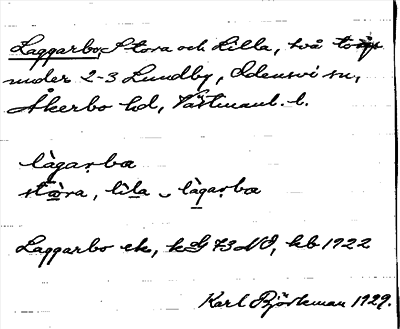 Laggarbo, Stora och Lilla, två torp
under 2-3 Lundby, Odensvi sn,
Åkerbo hd, Västmanl. l.
làgarba
stæ̀ra, lìla ᴗ làgarba
Laggarbo ek, kG 73 NO, kb 1922
Karl Björkman 1929.